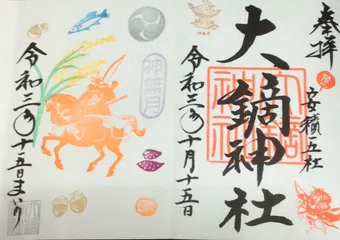 奉拝
安積五社
大鏑神社
令和三年十月十五日
神無月
令和三年十五日まいり